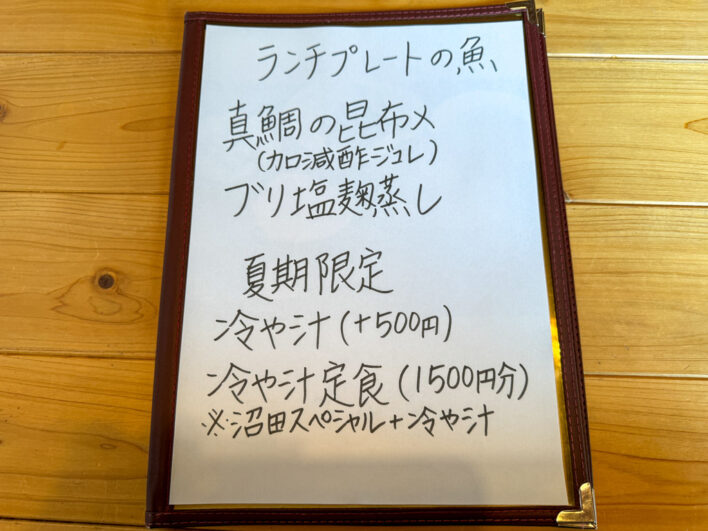 ランチプレートの魚
真鯛の昆布〆
(加減酢ジュレ)
ブリ塩麹蒸し
夏期限定
冷や汁(+500円)
冷や汁定食(1500円分)
※沼田スペシャル+冷や汁